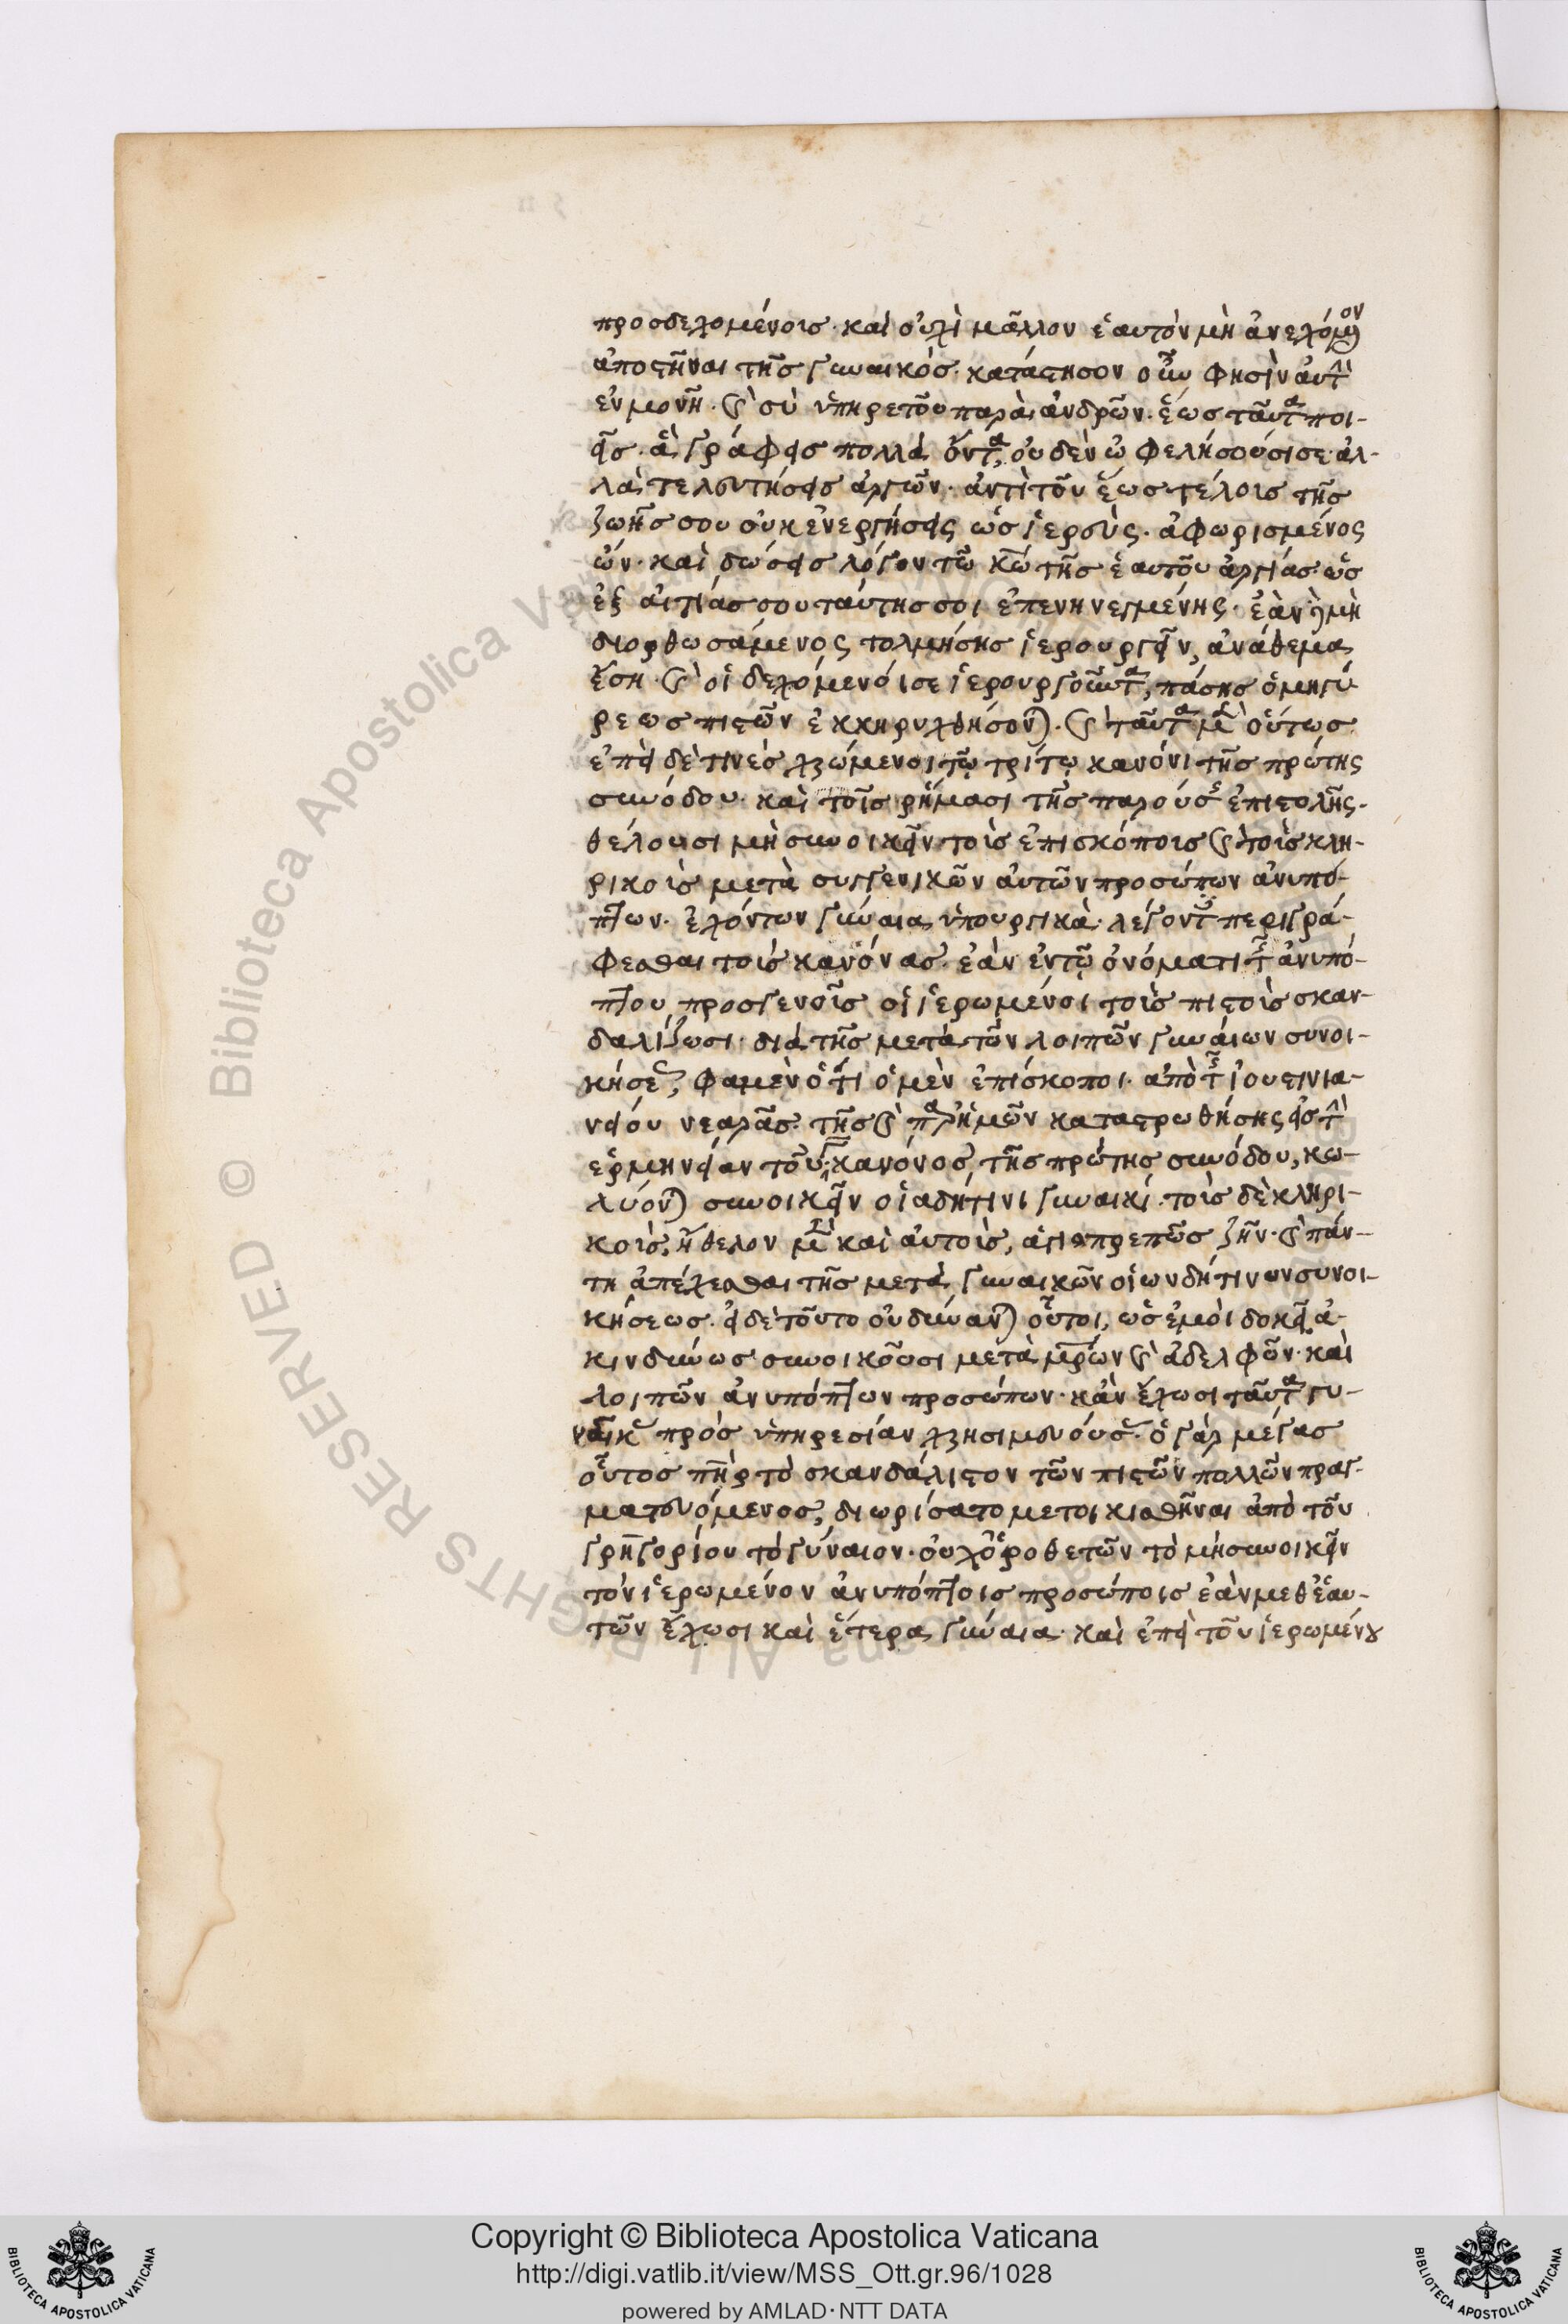 προσδεχομένοις· καὶ οὐχὶ μᾶλλον ἑαυτὸν μὴ ἀνεχόμενον
ἀποστῆναι τῆς γυναικός· κατάστησον οὖν φησὶν αὐτὴν
ἐν μονῇ· καὶ σὺ ὑπηρετοῦ παρὰ ἀνδρῶν· ἕως ταῦτα ποι-
εῖς· ἃ γράφεις πολλὰ ὄντα, οὐδὲν ὠφελήσουσί σε· ἀλ-
λὰ τελευτήσεις ἀργῶν· ἀντὶ τοῦ ἕως τέλους τῆς
ζωῆς σου οὐκ ἐνεργήσεις ὡς ἱερεύς· ἀφωρισμένος
ὤν· καὶ δώσεις λόγον τῷ κω τῆς ἑαυτοῦ ἀργίας· ὡς
ἐξ αἰτίας σου ταύτης σοι ἐπενηνεγμένης· ἐὰν δὲ μὴ
διορθωσάμενος τολμήσῃς ἱερουργεῖν, ἀνάθεμα
ἔσῃ· καὶ οἱ δεχόμενοί σε ἱερουργοῦντα, πάσης ὁμηγύ-
ρεως πιστῶν ἐκκηρυχθήσονται· καὶ ταῦτα μὲν οὕτως·
ἐπεὶ δέ τινες χρώμενοι τῷ τρίτῳ κανόνι τῆς πρώτης
συνόδου· καὶ τοῖς ῥήμασι τῆς παρούσης ἐπιστολῆς·
θέλουσι μὴ συνοικεῖν τοῖς ἐπισκόποις καὶ τοῖς κλη-
ρικοῖς μετὰ συγγενικῶν αὐτῶν προσώπων ἀνυπό-
πτων· ἐχόντων γύναια ὑπουργικά· λέγοντες περιγρά-
φεσθαι τοὺς κανόνας· ἐὰν ἐν τῷ ὀνόματι τῆς ἀνυπό-
πτου προσγενοῦς οἱ ἱερωμένοι τοῖς πιστοῖς σκαν-
δαλίζωσι· διὰ τῆς μετὰ τῶν λοιπῶν γυναίων συνοι-
κήσεως, φαμὲν ὅτι οἱ μὲν ἐπίσκοποι· ἀπὸ τῆς ἰουστινια-
νείου νεαρᾶς· τῆς καὶ παρ' ἡμῶν καταστρωθείσης εἰς τὴν
ἑρμηνείαν τοῦ γ κανόνος τῆς πρώτης συνόδου, κω-
λύονται συνοικεῖν οἱαδήτινι γυναικί· τοῖς δὲ κληρι-
κοῖς, ἤθελον μὲν καὶ αὐτοῖς, ἁγιοπρεπῶς ζῆν· καὶ πάν-
τη ἀπέχεσθαι τῆς μετὰ γυναικῶν οἱωνδήτινων συνοι-
κήσεως· εἰ δὲ τοῦτο οὐ δύνανται οὗτοι, ὡς ἐμοὶ δοκεῖ, ἀ-
κινδύνως συνοικοῦσι μετὰ μρίων καὶ ἀδελφῶν· καὶ
λοιπῶν ἀνυπόπτων προσώπων· κἂν ἔχωσι ταῦτα γυ-
ναῖκας πρὸς ὑπηρεσίαν χρησιμευούσας· ὁ γὰρ μέγας
οὗτος πηρ τὸ σκανδάλιστον τῶν πιστῶν πολλῶν πραγ-
ματευόμενος, διωρίσατο μετοικισθῆναι ἀπὸ τοῦ
γρηγορίου τὸ γύναιον· οὐχ ὁροθετῶν τὸ μὴ συνοικεῖν
τὸν ἱερωμένον ἀνυπόπτοις προσώποις ἐὰν μεθ' ἑαυ-
τῶν ἔχωσι καὶ ἕτερα γύναια· καὶ ἐπεὶ τοῦ ἱερωμένου
Copyright © Biblioteca Apostolica Vaticana
http://digi.vatlib.it/view/MSS_Ott.gr.96/1028
powered by AMLAD · NTT DATA